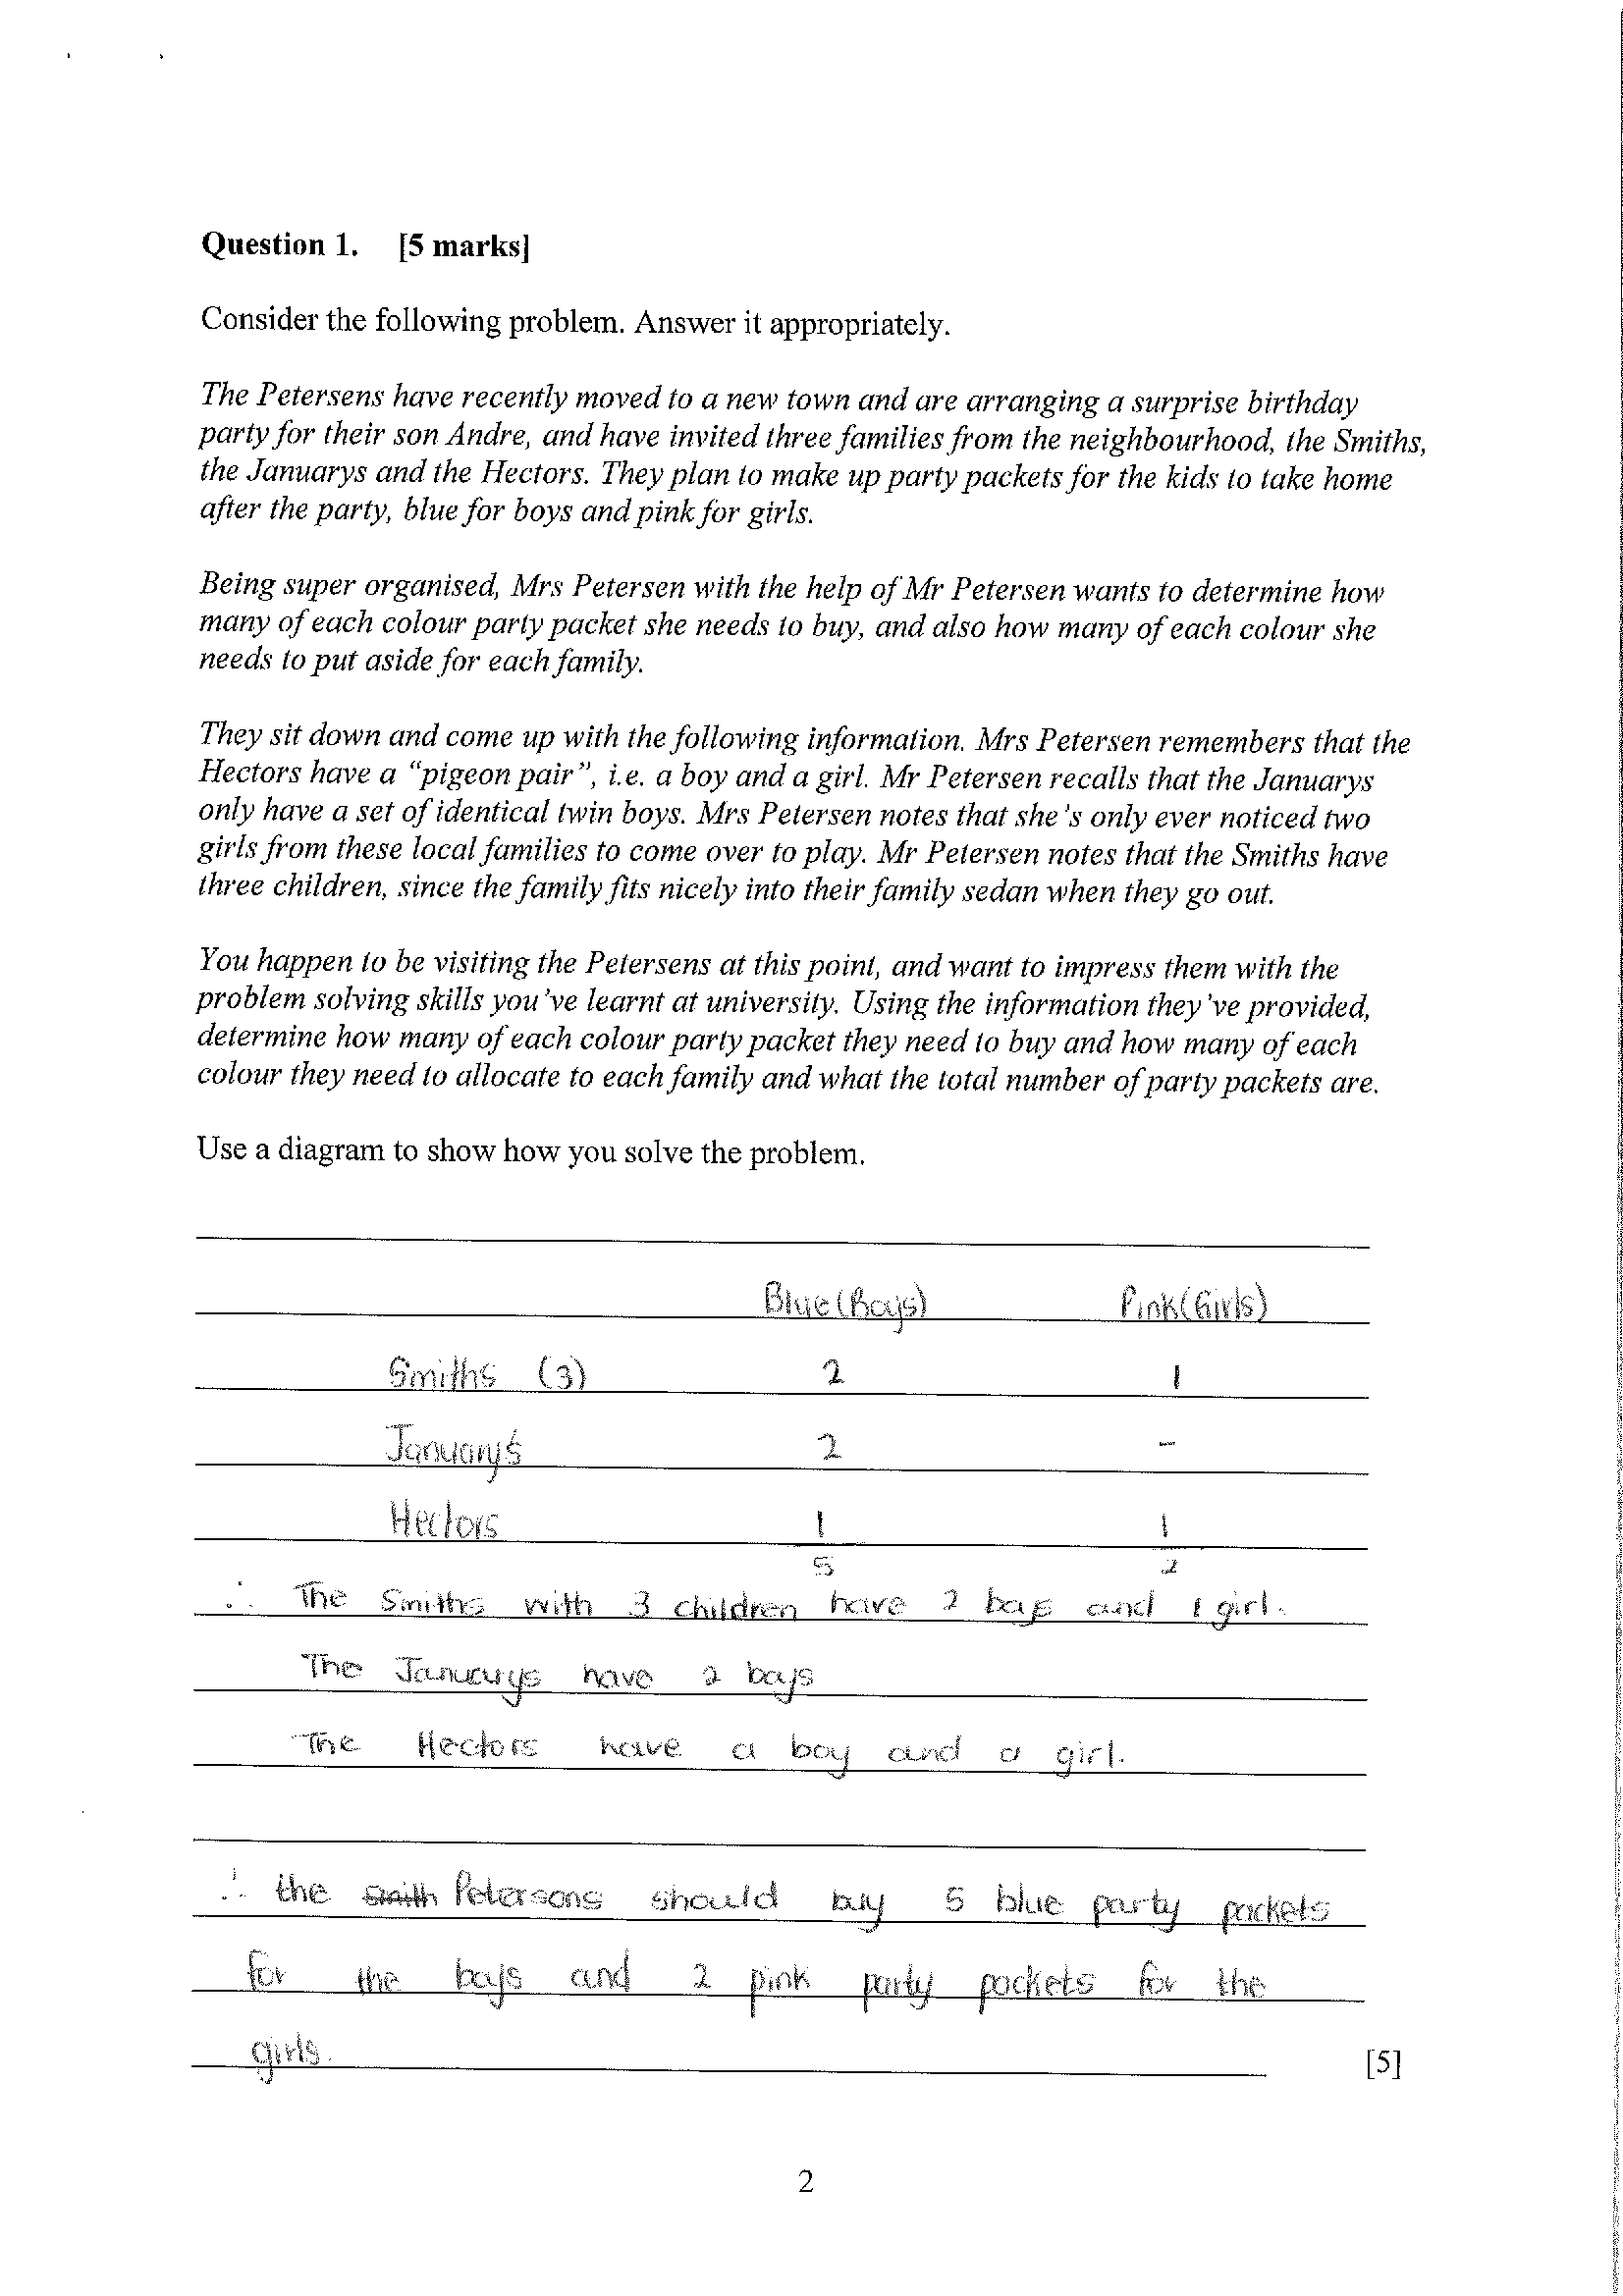 Question 1. [5 marks]
Consider the following problem. Answer it appropriately.
The Petersens have recently moved to a new town and are arranging a surprise birthday
party for their son Andre, and have invited three families from the neighbourhood, the Smiths,
the Januarys and the Hectors. They plan to make up party packets for the kids to take home
after the party, blue for boys and pink for girls.
Being super organised, Mrs Petersen with the help of Mr Petersen wants to determine how
many of each colour party packet she needs to buy, and also how many of each colour she
needs to put aside for each family.
They sit down and come up with the following information. Mrs Petersen remembers that the
Hectors have a “pigeon pair”, i.e. a boy and a girl. Mr Petersen recalls that the Januarys
only have a set of identical twin boys. Mrs Petersen notes that she’s only ever noticed two
girls from these local families to come over to play. Mr Petersen notes that the Smiths have
three children, since the family fits nicely into their family sedan when they go out.
You happen to be visiting the Petersens at this point, and want to impress them with the
problem solving skills you’ve learnt at university. Using the information they’ve provided,
determine how many of each colour party packet they need to buy and how many of each
colour they need to allocate to each family and what the total number of party packets are.
Use a diagram to show how you solve the problem.
Blue(Boys) Pink(Girls)
Smiths (3) 2 1
January's 2 -
Hectors 1 1
5 2
∴ The Smiths with 3 children have 2 boys and 1 girl.
The Januarys have 2 boys
The Hectors have a boy and a girl.
∴ the Smith Petersons should buy 5 blue party packets
for the boys and 2 pink party packets for the
girls.
[5]
2